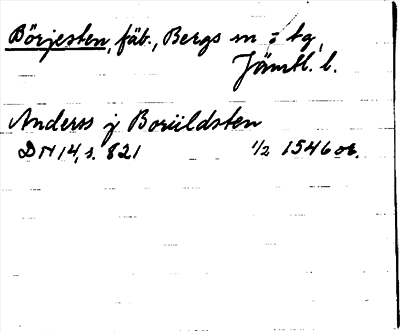 Börjesten, fäb., Bergs sn o tg,
Jämtl. l.
Anderss j Borüldsten
DN 14, s. 821 1/2 1546 or.